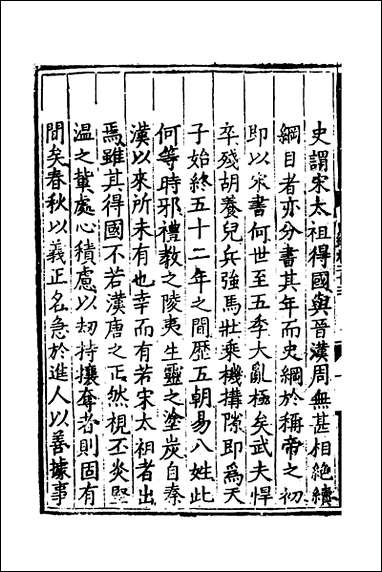 史謂宋太祖得國與晉漢周無甚相絶續
綱目者亦分書其年而史綱於稱帝之初
即以宋書何世至五季大亂極矣武夫悍
卒殘胡養兒兵強馬壯乘機搆隙即為天
子始終五十二年之間歴五朝易八姓此
何等時邪禮教之陵夷生靈之塗炭自秦
漢以來所未有也幸而有若宋太祖者出
焉雖其得國不若漢唐之正然視丕炎堅
温之輩處心積慮以刼持攘奪者則固有
間矣春秋以義正名急於進人以善據事